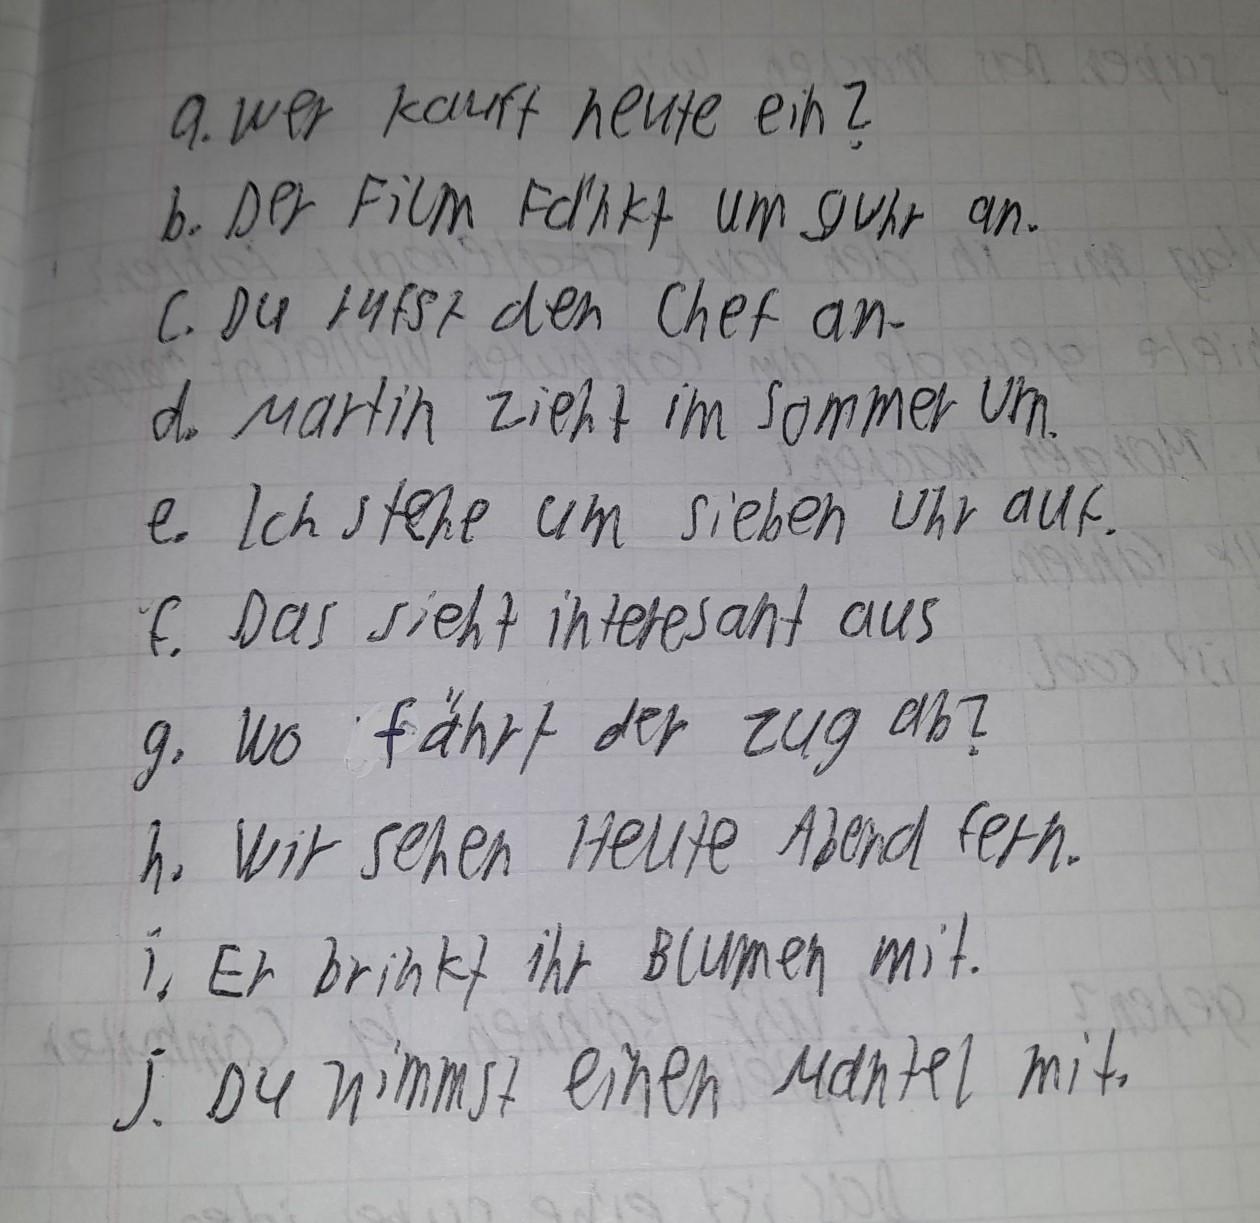 a. Wer kauft heute ein?
b. Der Film Fänkt um 9 uhr an.
c. Du rufst den Chef an.
d. Martin zieht im Sommer um.
e. Ich stehe um sieben Uhr auf.
f. Das sieht interesant aus
g. Wo fährt der Zug ab?
h. Wir sehen Heute Abend fern.
i. Er brinkt ihr Blumen mit.
j. Du nimmst einen Mantel mit.